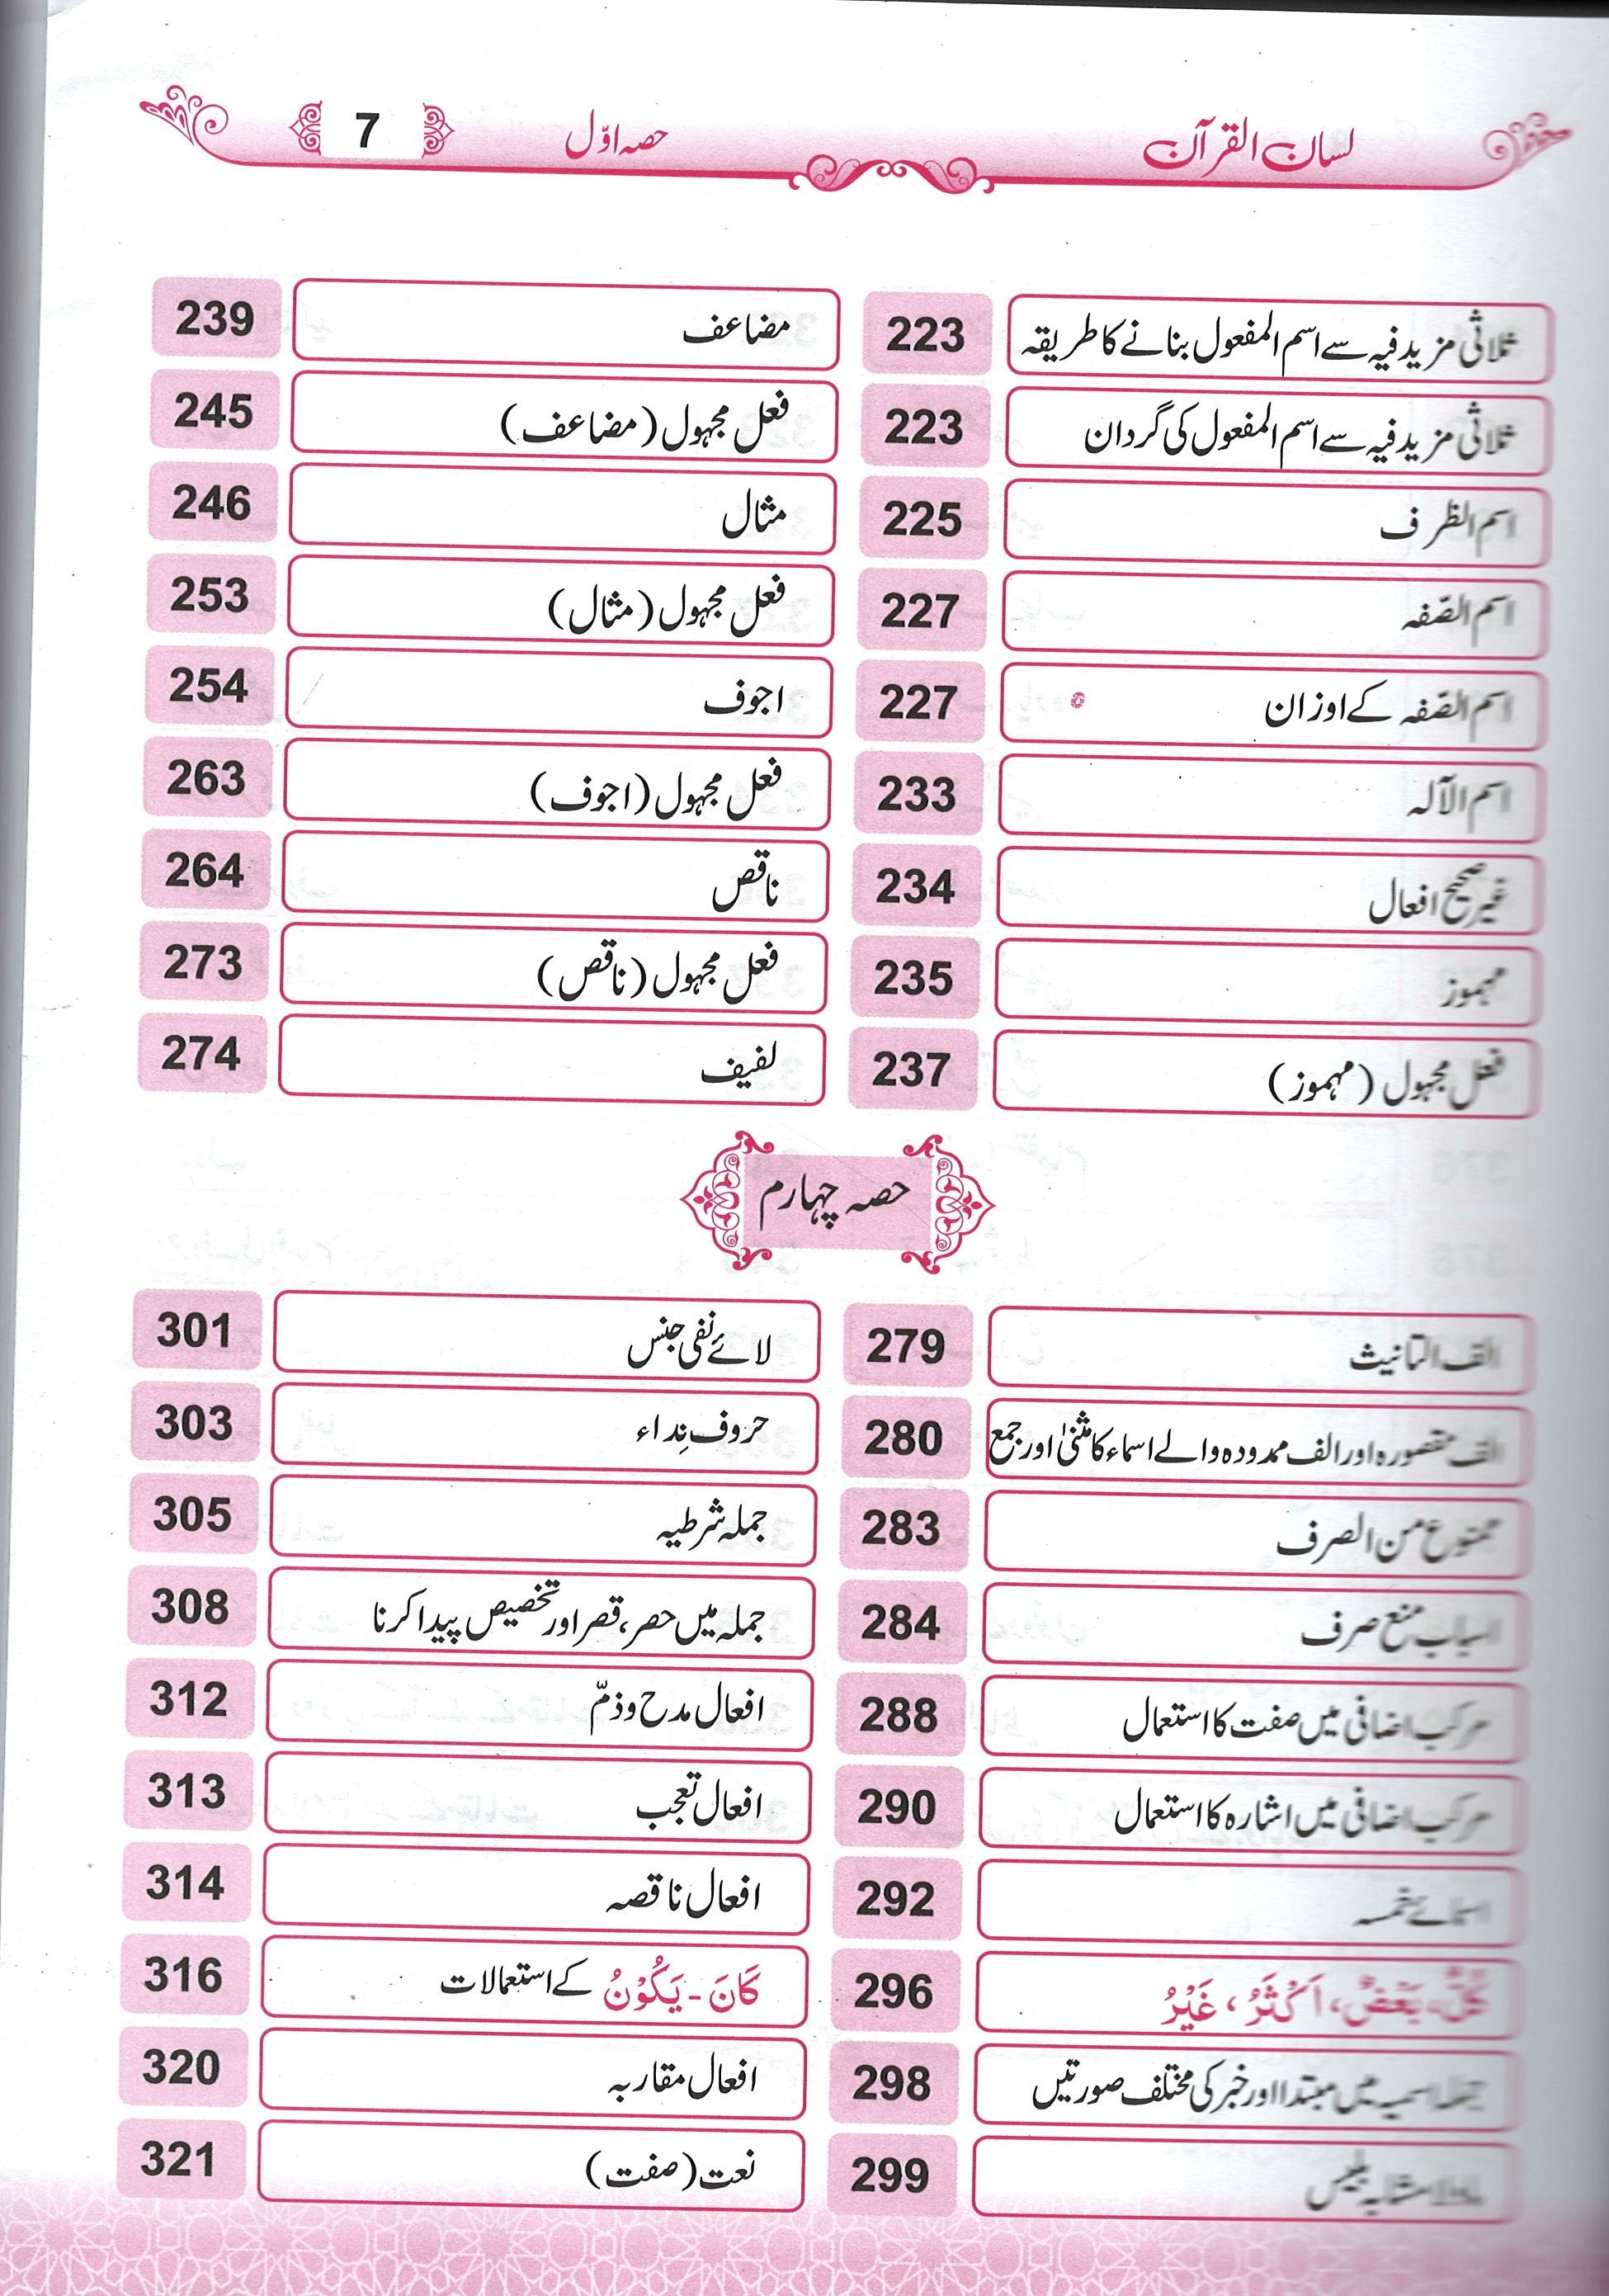 لسان القرآن
حصہ اوّل
7
ثلاثی مزید فیہ سے اسم المفعول بنانے کا طریقہ 223
ثلاثی مزید فیہ سے اسم المفعول کی گردان 223
اسم الظرف 225
اسم الصّفہ 227
اسم الصّفہ کے اوزان 227
اسم الآلہ 233
غیر صحیح افعال 234
مہموز 235
فعل مجہول (مہموز) 237
مضاعف 239
فعل مجہول (مضاعف) 245
مثال 246
فعل مجہول (مثال) 253
اجوف 254
فعل مجہول (اجوف) 263
ناقص 264
فعل مجہول (ناقص) 273
لفیف 274
حصہ چہارم
الف التانیث 279
الف مقصورہ اور الف ممدودہ والے اسماء کا مثنیٰ اور جمع 280
ممنوع من الصرف 283
اسباب منع صرف 284
مرکب اضافی میں صفت کا استعمال 288
مرکب اضافی میں اشارہ کا استعمال 290
اسمائے خمسہ 292
کُلُّ، بَعْضُ، اَکْثَرُ، غَیْرُ 296
جملہ اسمیہ میں مبتدا اور خبر کی مختلف صورتیں 298
ما و لا مشابہ بلیس 299
لائے نفی جنس 301
حروف نِداء 303
جملہ شرطیہ 305
جملہ میں حصر، قصر اور تخصیص پیدا کرنا 308
افعال مدح و ذمّ 312
افعال تعجب 313
افعال ناقصہ 314
کَانَ - یَکُوْنُ کے استعمالات 316
افعال مقاربہ 320
نعت (صفت) 321